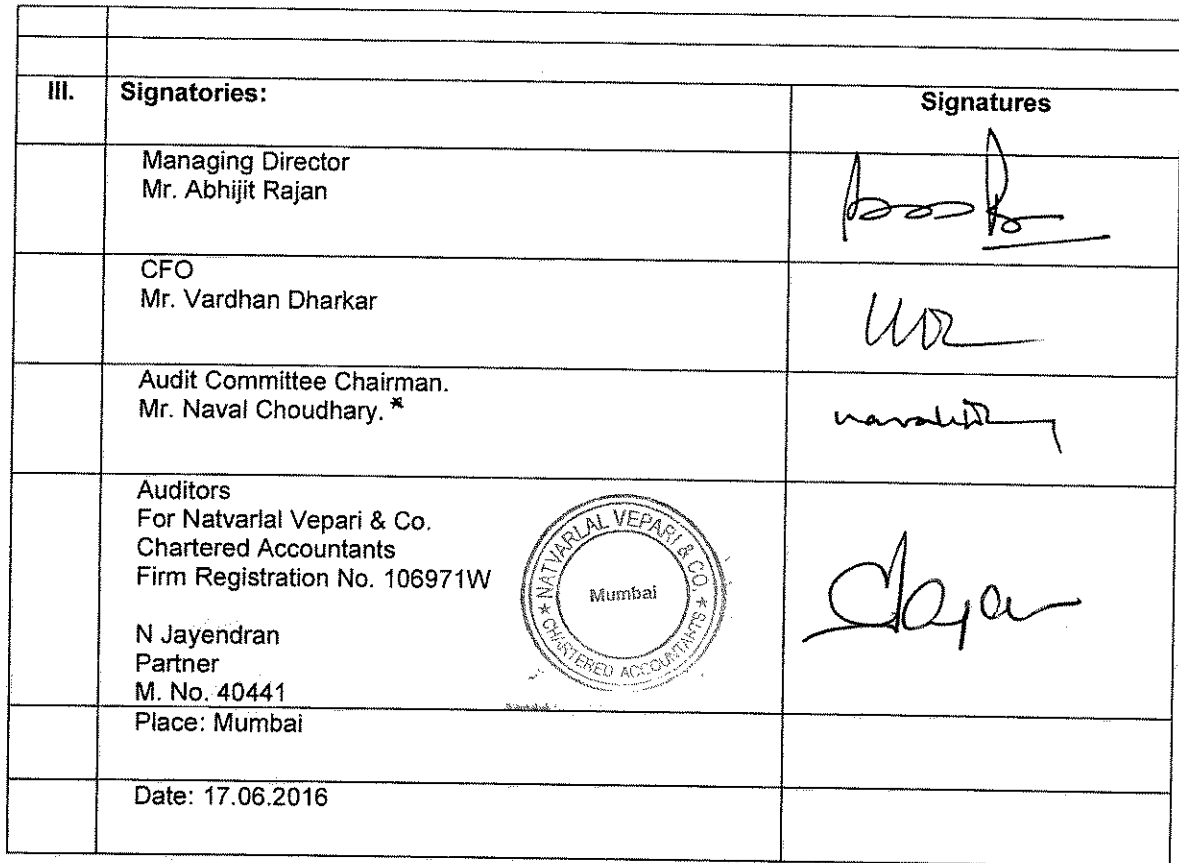 III. Signatories: Signatures
Managing Director
Mr. Abhijit Rajan
CFO
Mr. Vardhan Dharkar
Audit Committee Chairman.
Mr. Naval Choudhary. *
Auditors
For Natvarlal Vepari & Co.
Chartered Accountants
Firm Registration No. 106971W
N Jayendran
Partner
M. No. 40441
★ NATVARLAL VEPARI & CO. ★
CHARTERED ACCOUNTANTS
Mumbai
Place: Mumbai
Date: 17.06.2016